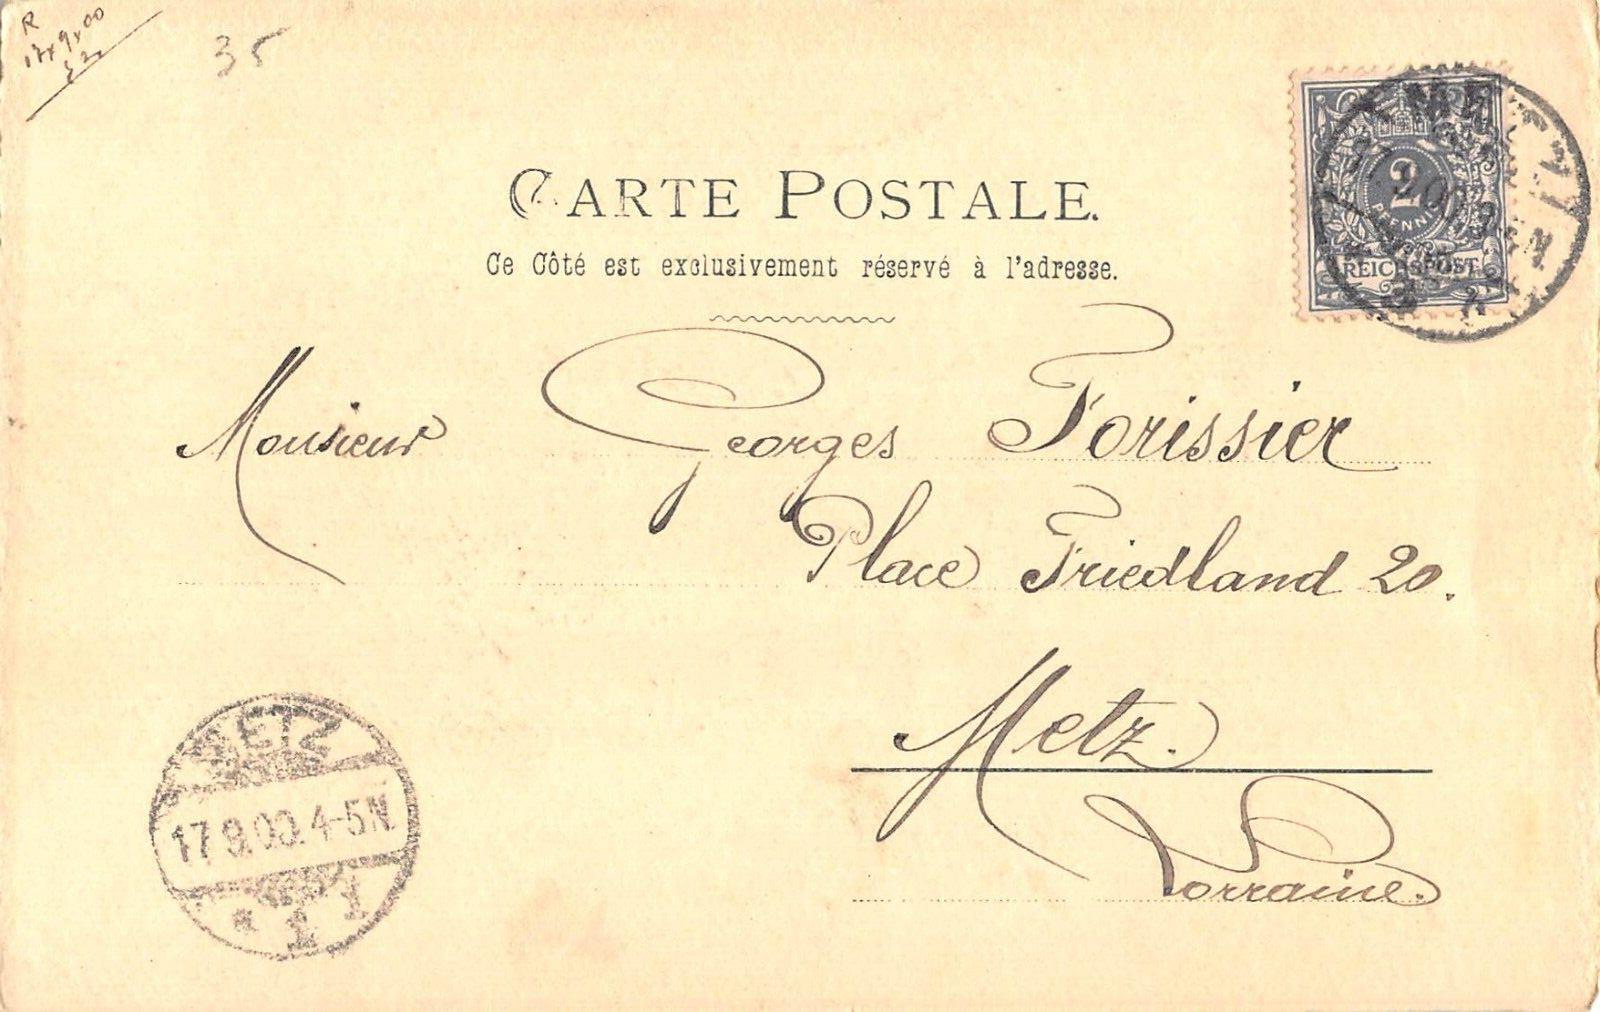 R
17x9x00
35
CARTE POSTALE.
Ce Côté est exclusivement réservé à l'adresse.
METZ
2
PFENNIG
REICHSPOST
Monsieur Georges Forissier
Place Friedland 20.
Metz.
Lorraine.
METZ
17.9.00.4-5N
* 1 1